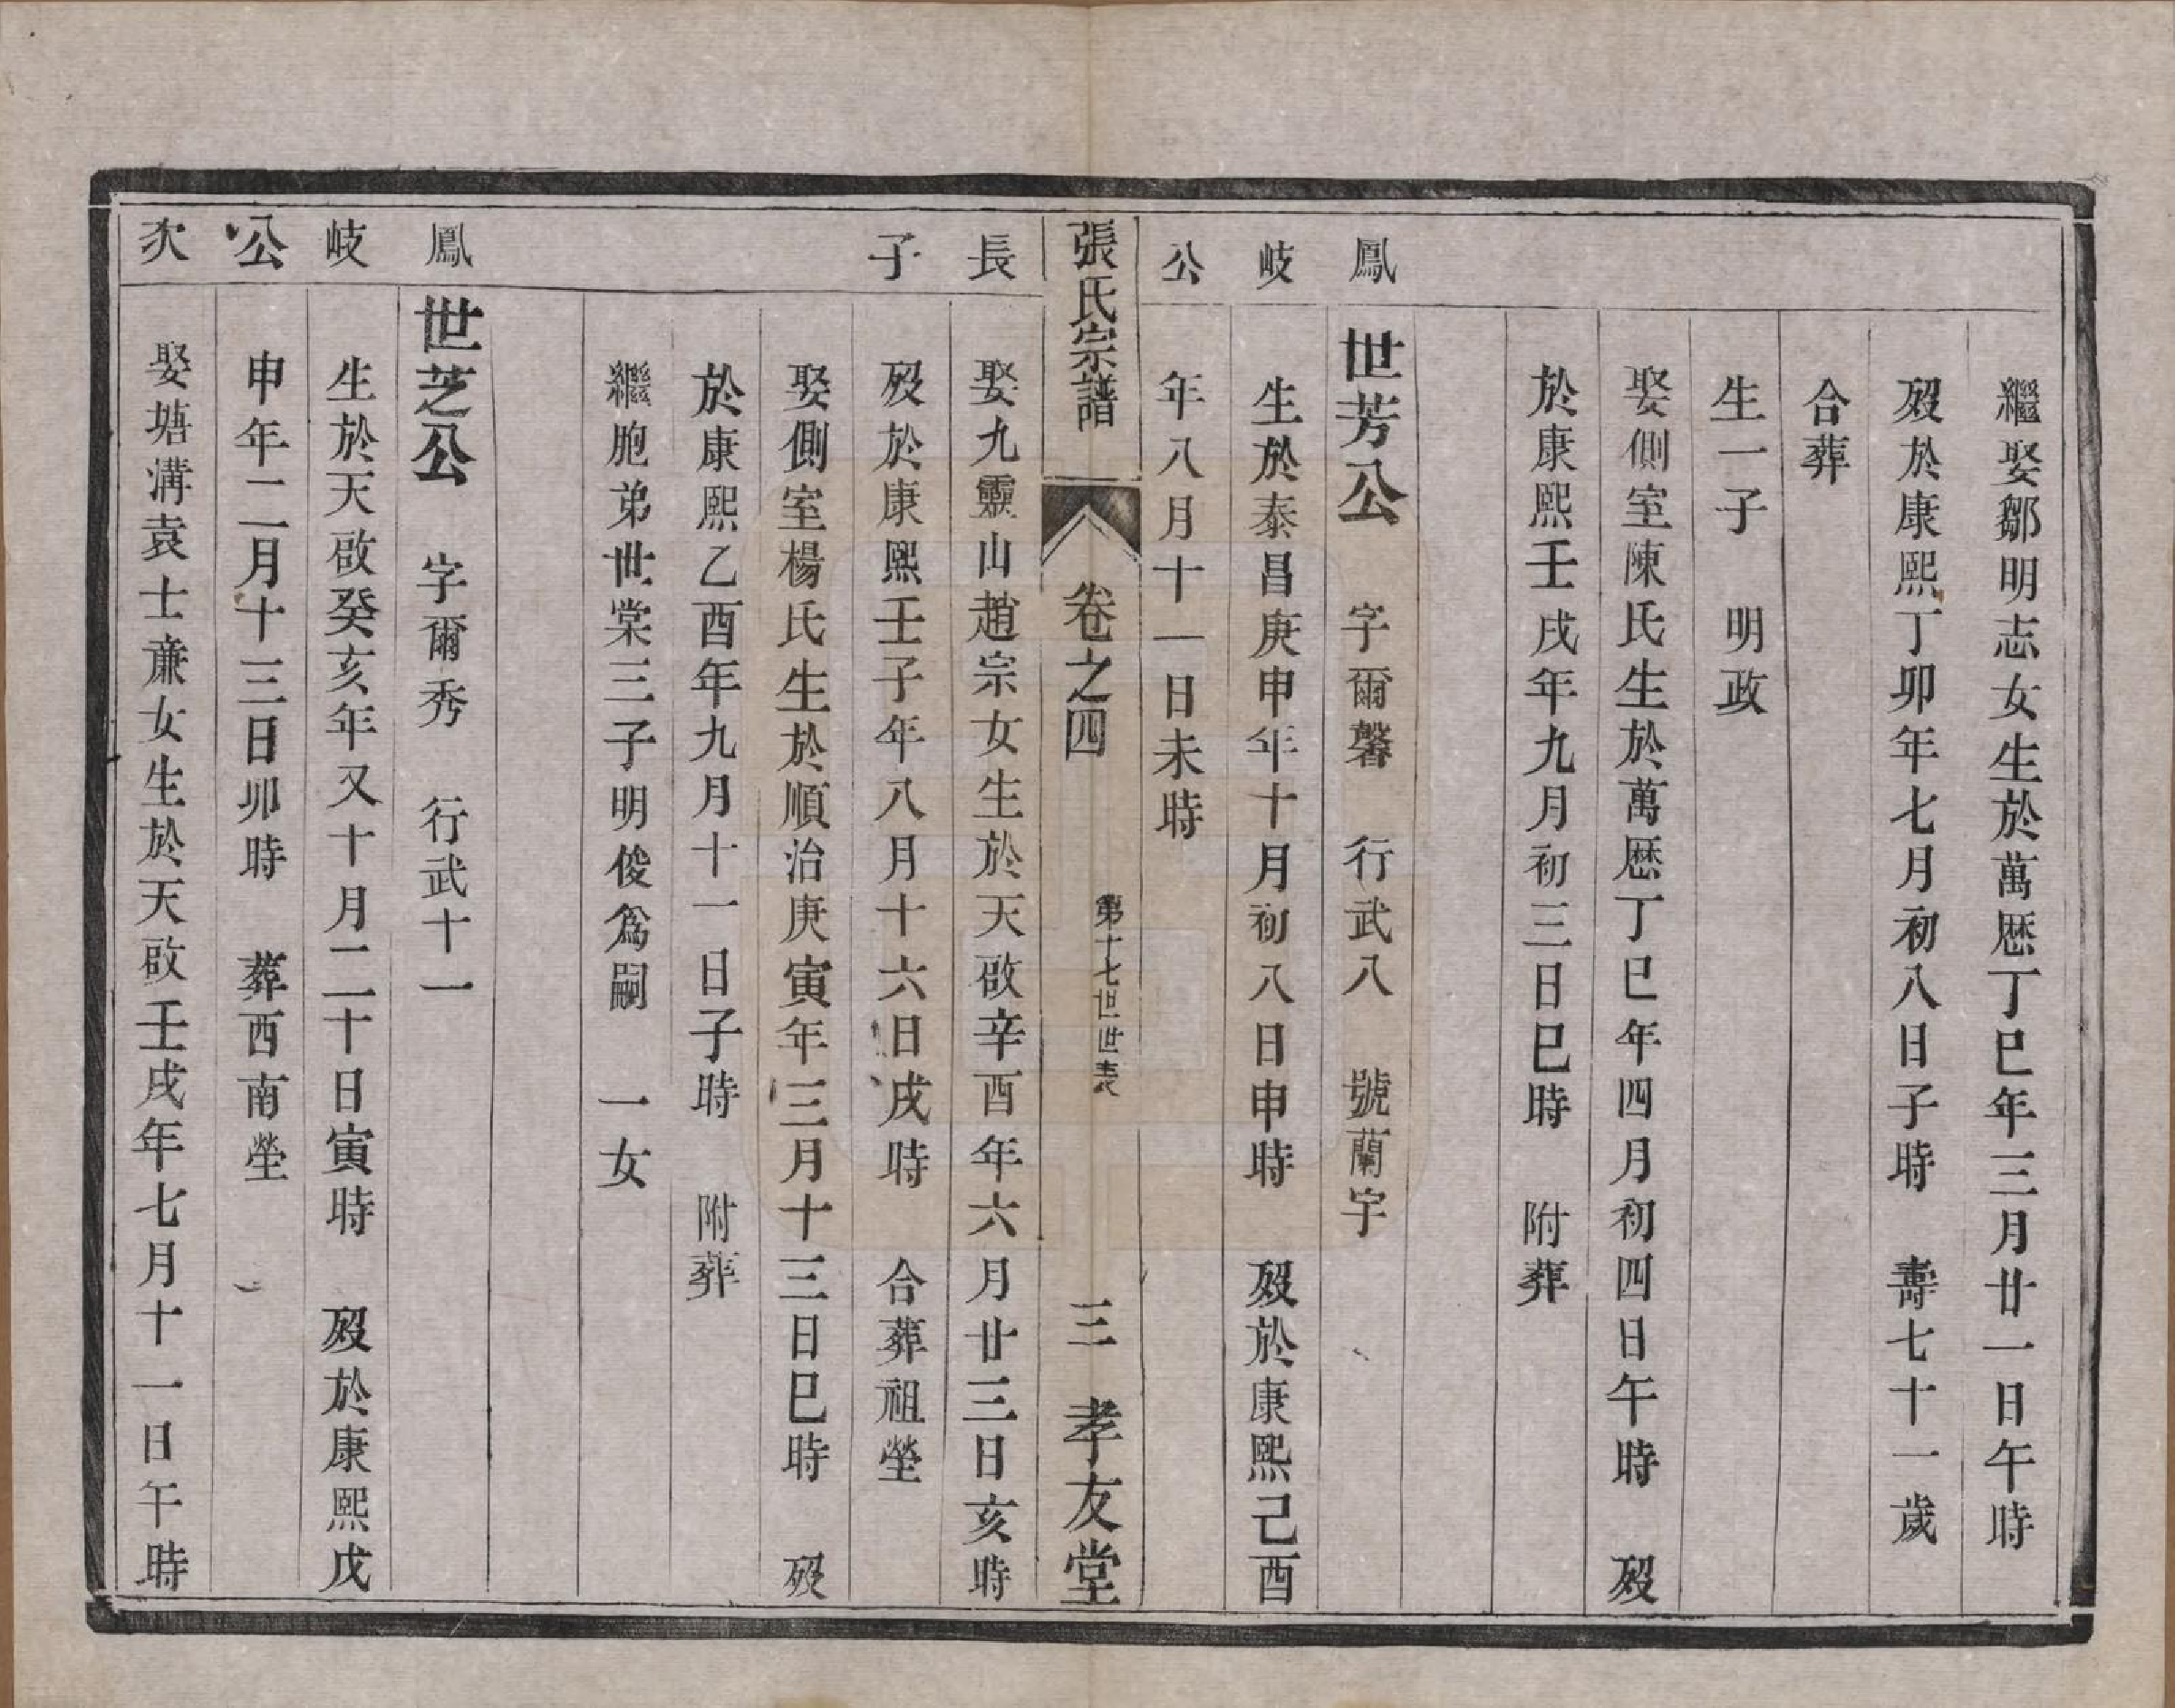 繼娶鄒明志女生於萬歷丁巳年三月廿一日午時
歿於康熙丁卯年七月初八日子時　壽七十一歲
合葬
生一子　明政
娶側室陳氏生於萬歷丁巳年四月初四日午時　歿
於康熙壬戌年九月初三日巳時　附葬
鳳　世芳公　字爾馨　行武八　號蘭宇
岐　生於泰昌庚申年十月初八日申時　歿於康熙己酉
公　年八月十一日未時
張氏宗譜　卷之四　第十七世世表　三　孝友堂
長　娶九靈山趙宗女生於天啟辛酉年六月廿三日亥時
子　歿於康熙壬子年八月十六日戌時　合葬祖塋
娶側室楊氏生於順治庚寅年三月十三日巳時　歿
於康熙乙酉年九月十一日子時　附葬
繼胞弟世棠三子明俊為嗣　一女
鳳　世芝公　字爾秀　行武十一
岐　生於天啟癸亥年又十月二十日寅時　歿於康熙戊
公　申年二月十三日卯時　葬西南塋
次　娶塘溝袁士亷女生於天啟壬戌年七月十一日午時